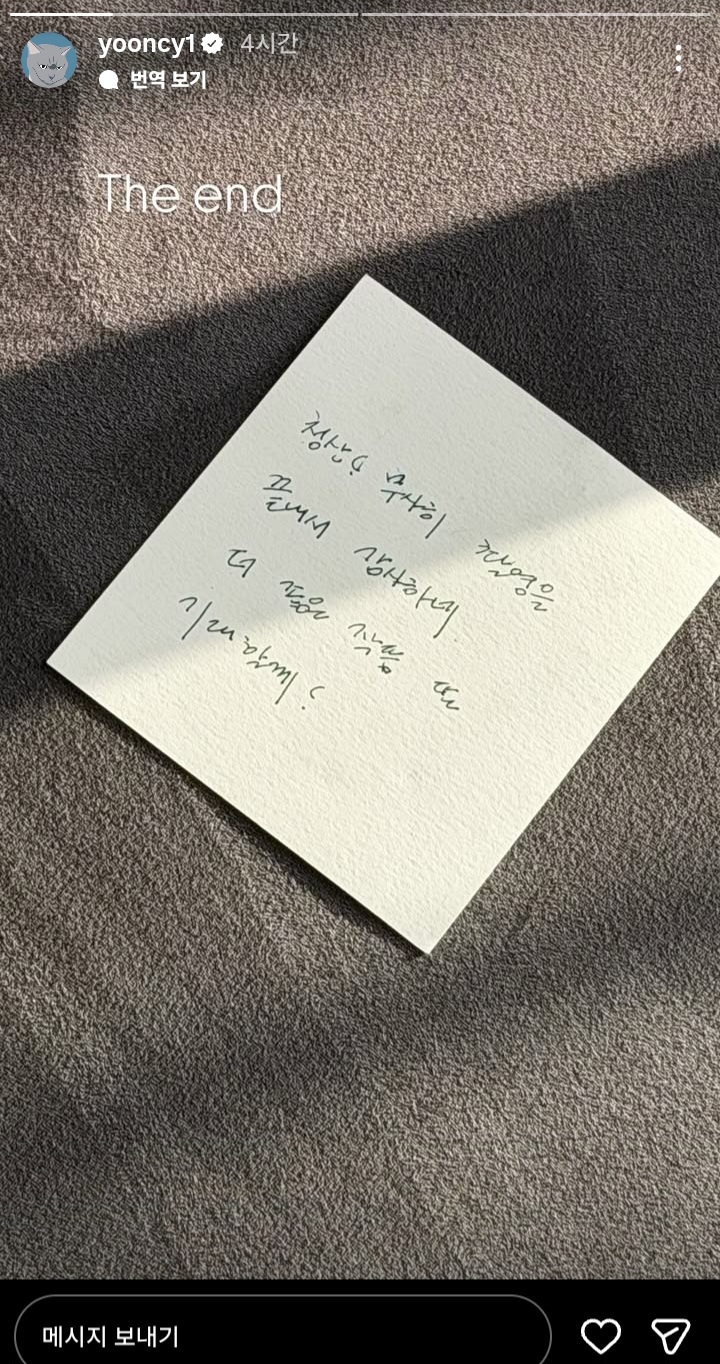 yooncy1 4시간
번역 보기
The end
청산! 무사히 촬영을
끝내서 감사하네.
더 좋은 작품 또
기대할께!
메시지 보내기